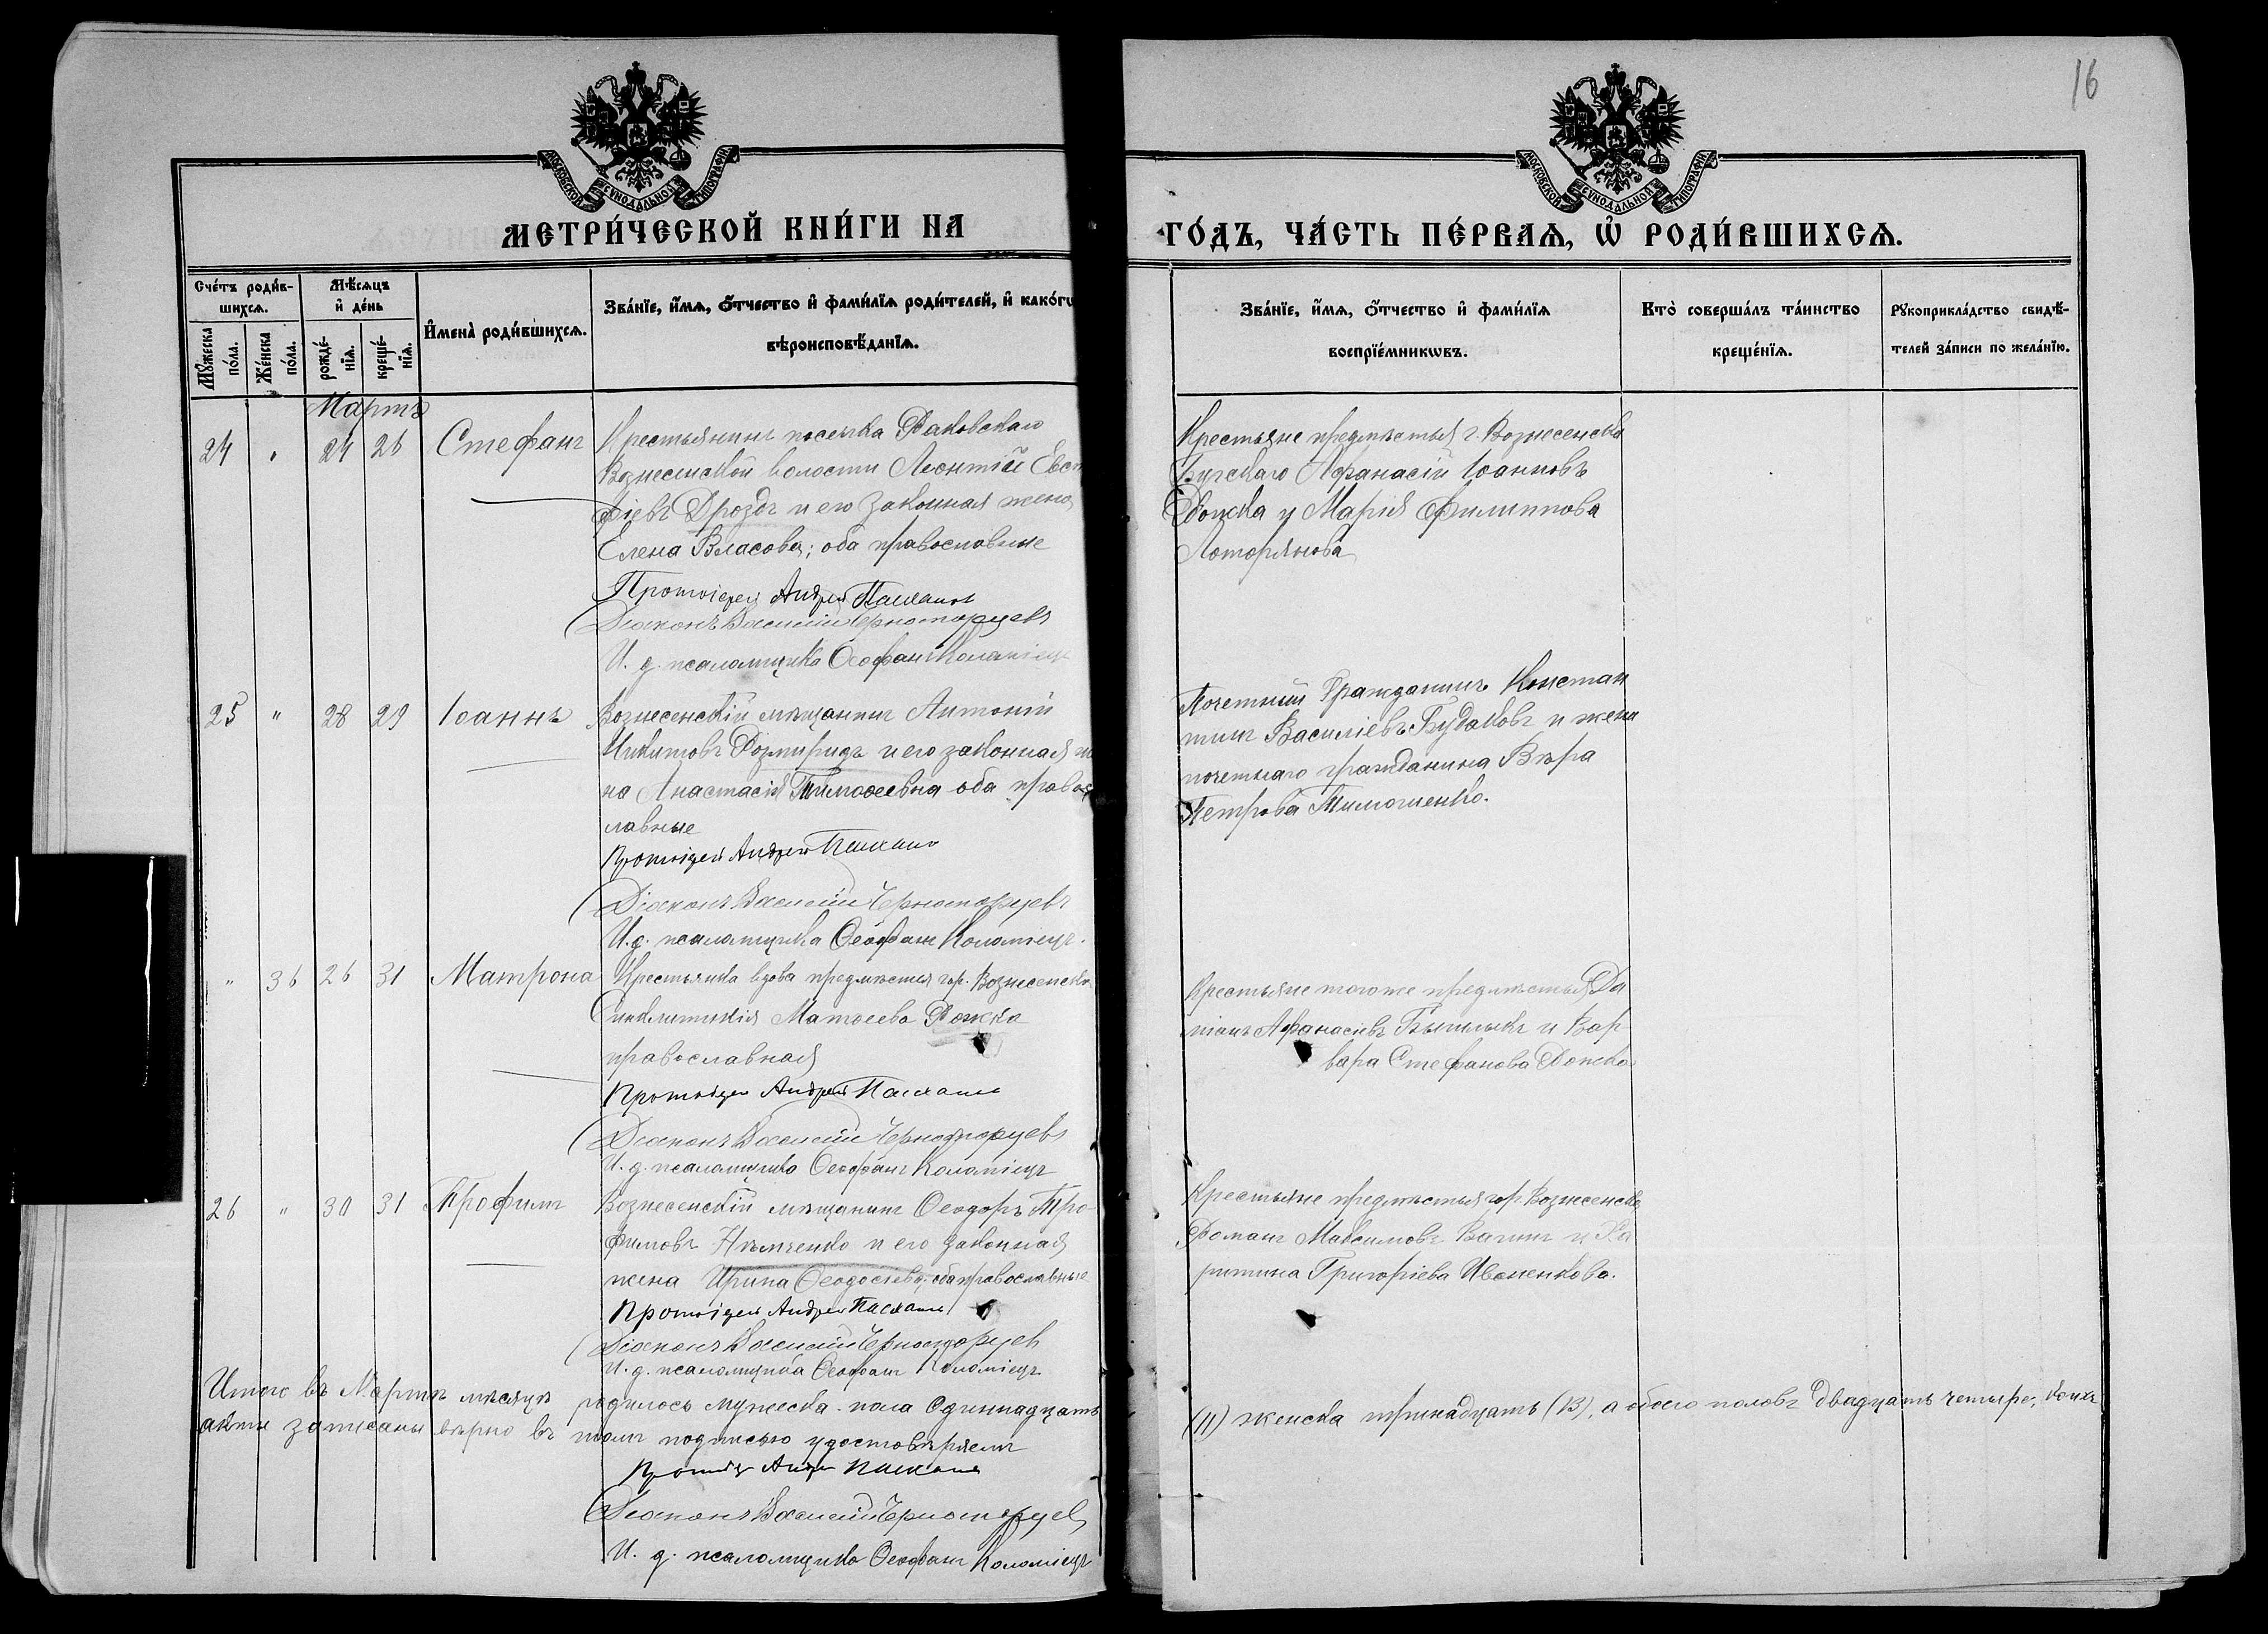 16
МОСКОВСКОЙ СѴНОДАЛЬНОЙ ТИПОГРАФІИ
МОСКОВСКОЙ СѴНОДАЛЬНОЙ ТИПОГРАФІИ
МЕТРИ́ЧЕСКОЙ КНИ́ГИ НА
ГО́ДЪ, ЧА́СТЬ ПЕ́РВАѦ, Ѡ҆ РОДИ́ВШИХСѦ.
Счéтъ роди́в-
шихсѧ.
Мꙋ́жеска
по́ла.
Же́нска
по́ла.
Мѣ́сѧцъ
и҆ де́нь
рожде́-
нїѧ.
креще́-
нїѧ.
И҆мена̀ роди́вшихсѧ.
Зва́нїе, и҆́мѧ, ѻ҆́тчество и҆ фами́лїѧ роди́телей, и҆ како́гw
вѣроисповѣ́данїѧ.
Зва́нїе, и҆́мѧ, ѻ҆́тчество и҆ фами́лїѧ
воспрїе́мникѡвъ.
Кто̀ соверша́лъ та́инство
креще́нїѧ.
Рꙋкоприкла́дство свидѣ́-
телей за́писи по жела́нїю.
Мартъ
24 " 24 26 Стефанъ
Крестьянинъ поселка
Вознесенской волости Леонтій
фіевъ Дроздъ и его законная жена
Елена Власова; оба православные
Протоіерей Андрей
Діаконъ Василій Черноморцевъ
И. д. псаломщика Ѳеофанъ Коломіецъ
Крестьяне предмѣстья г. Вознесенска
Бугскаго Афанасій Іоанновъ
и Марія Филиппова
25 " 28 29 Іоаннъ
Вознесенскій мѣщанинъ Антоній
Никитовъ и его законная же
на Анастасія Тимоѳеевна оба правос
лавные
Протоіерей Андрей
Діаконъ Василій Черноморцевъ
И. д. псаломщика Ѳеофанъ Коломіецъ.
Почетный Гражданинъ Констан
тинъ Василіевъ Будаковъ и жена
почетнаго гражданина Вѣра
Петрова Тимошенко.
" 36 26 31 Матрона
Крестьянка вдова предмѣстья гор. Вознесенска
Синклитикія Матѳеева
православная
Протоіерей Андрей
Діаконъ Василій Черноморцевъ
И. д. псаломщика Ѳеофанъ Коломіецъ
Крестьяне того же предмѣстья Да
міанъ Афанасіевъ и Вар
вара Стефанова
26 " 30 31 Трофимъ
Вознесенскій мѣщанинъ Ѳеодоръ Тро
фимовъ Нѣмченко и его законная
жена Ирина Ѳеодосіева; оба православные
Протоіерей Андрей
Діаконъ Василій Черноморцевъ
И. д. псаломщика Ѳеофанъ Коломіецъ
Крестьяне предмѣстья гор. Вознесенска
Романъ Максимовъ и Ха
ритина Григоріева Иваненкова.
Итого въ Мартѣ мѣсяцѣ родилось мужеска пола Одиннадцать
(11) женска тринадцать (13), а обоего половъ двадцать четыре, коихъ
акты записаны вѣрно въ томъ подписью удостовѣряемъ
Протоіерей Андрей
Діаконъ Василій Черноморцевъ
И. д. псаломщика Ѳеофанъ Коломіецъ